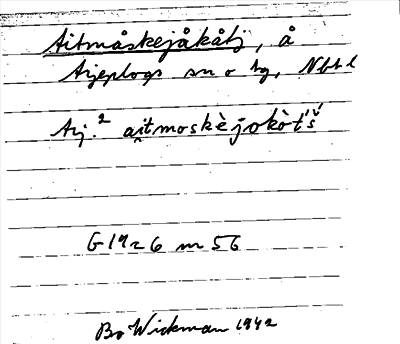 Aitmåskejåkåtj, å
Arjeplogs sn o tg, Nbtl
Arj.² ai̯tmoskèjokòt'š'
G 1726 nr 56
Bo Wickman 1942